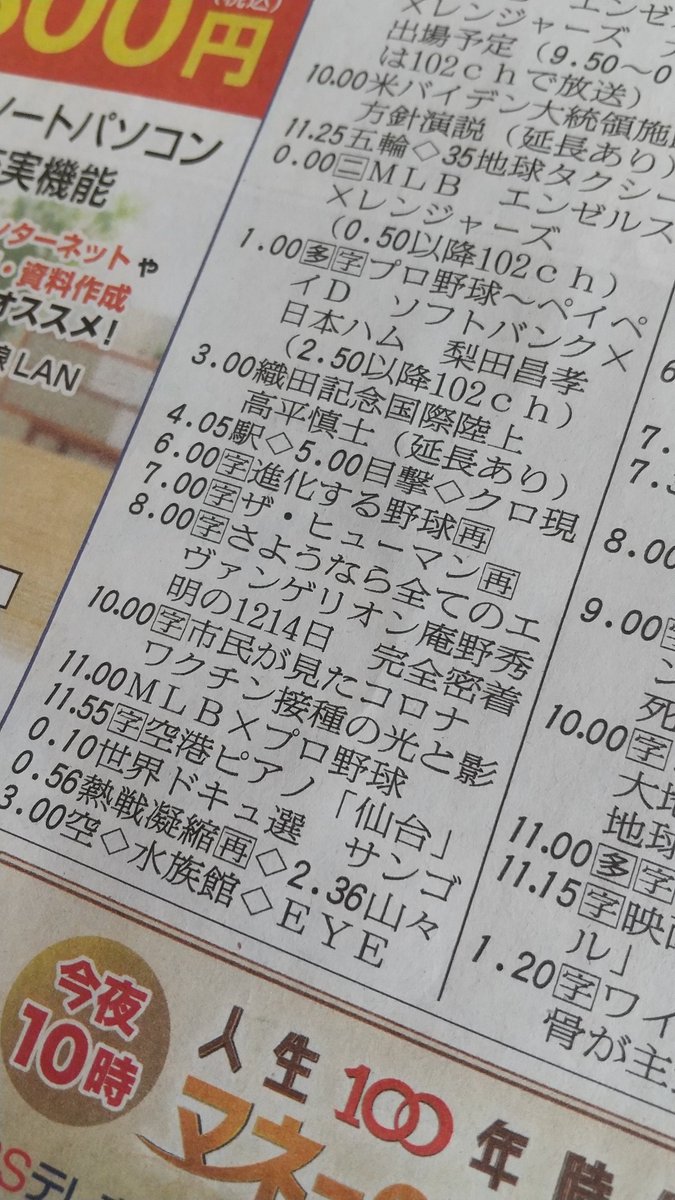 円
(税込)
ートパソコン
実機能
ンターネットや
・資料作成
オススメ!
線LAN
×レンジャーズ
出場予定(9.50〜0
は102chで放送)
10.00米バイデン大統領施
方針演説(延長あり)
11.25五輪◇35地球タクシー
0.00㊁MLB エンゼルス
×レンジャーズ
(0.50以降102ch)
1.00多字プロ野球〜ペイペ
イD ソフトバンク×
日本ハム 梨田昌孝
(2.50以降102ch)
3.00織田記念国際陸上
高平慎士(延長あり)
4.05駅◇5.00目撃◇クロ現
6.00字進化する野球再
7.00字ザ・ヒューマン再
8.00字さようなら全てのエ
ヴァンゲリオン庵野秀
明の1214日 完全密着
10.00字市民が見たコロナ
ワクチン接種の光と影
11.00MLB×プロ野球
11.55字空港ピアノ「仙台」
0.10世界ドキュ選 サンゴ
0.56熱戦凝縮再◇2.36山々
3.00空◇水族館◇EYE
8.00
9.00字
ン
死
10.00字
大地
地球
11.00多字
11.15字映画
ル」
1.20字ワイ
骨が主
今夜
10時
人生100年時
マネー
Sテレ